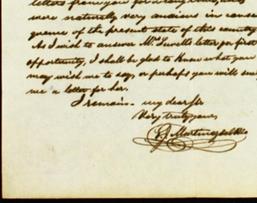 letters from you for
more naturally very anxious in conse-
quence of the present state of this country
As I wish to answer Mrs Lovell's letter per first
opportunity, I shall be glad to know what you
may wish me to say, or perhaps you will send
me a letter for her.
I remain - my dear Sir
Very truly yours,